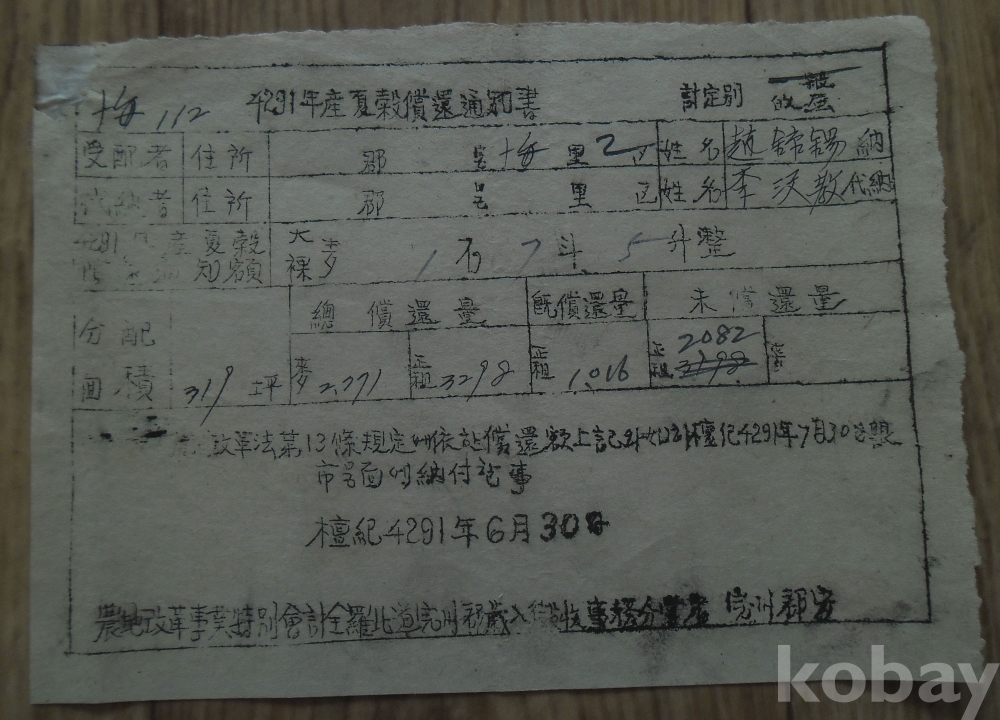 梅 112
4291年産夏穀償還通知書 計定別
受配者 住所 郡 邑 梅 里 2 区 姓名 趙 錫 納
者 住所 郡 邑 里 区 姓名 李 教 代納
4291年産夏穀 知額 大裸麥 1石 7斗 5升整
分配面積 319坪
總償還量 旣償還量 未償還量
麥 2.771 正租 3298 正租 1.016 正租 2082 3198
改革法第13條規定에依한償還額上記와如히檀紀4291年7月30日限
市邑面에納付할事
檀紀4291年6月30日
農地改革事業特別會計全羅北道完州郡歲入徵收事務分掌官 完州郡守
kobay